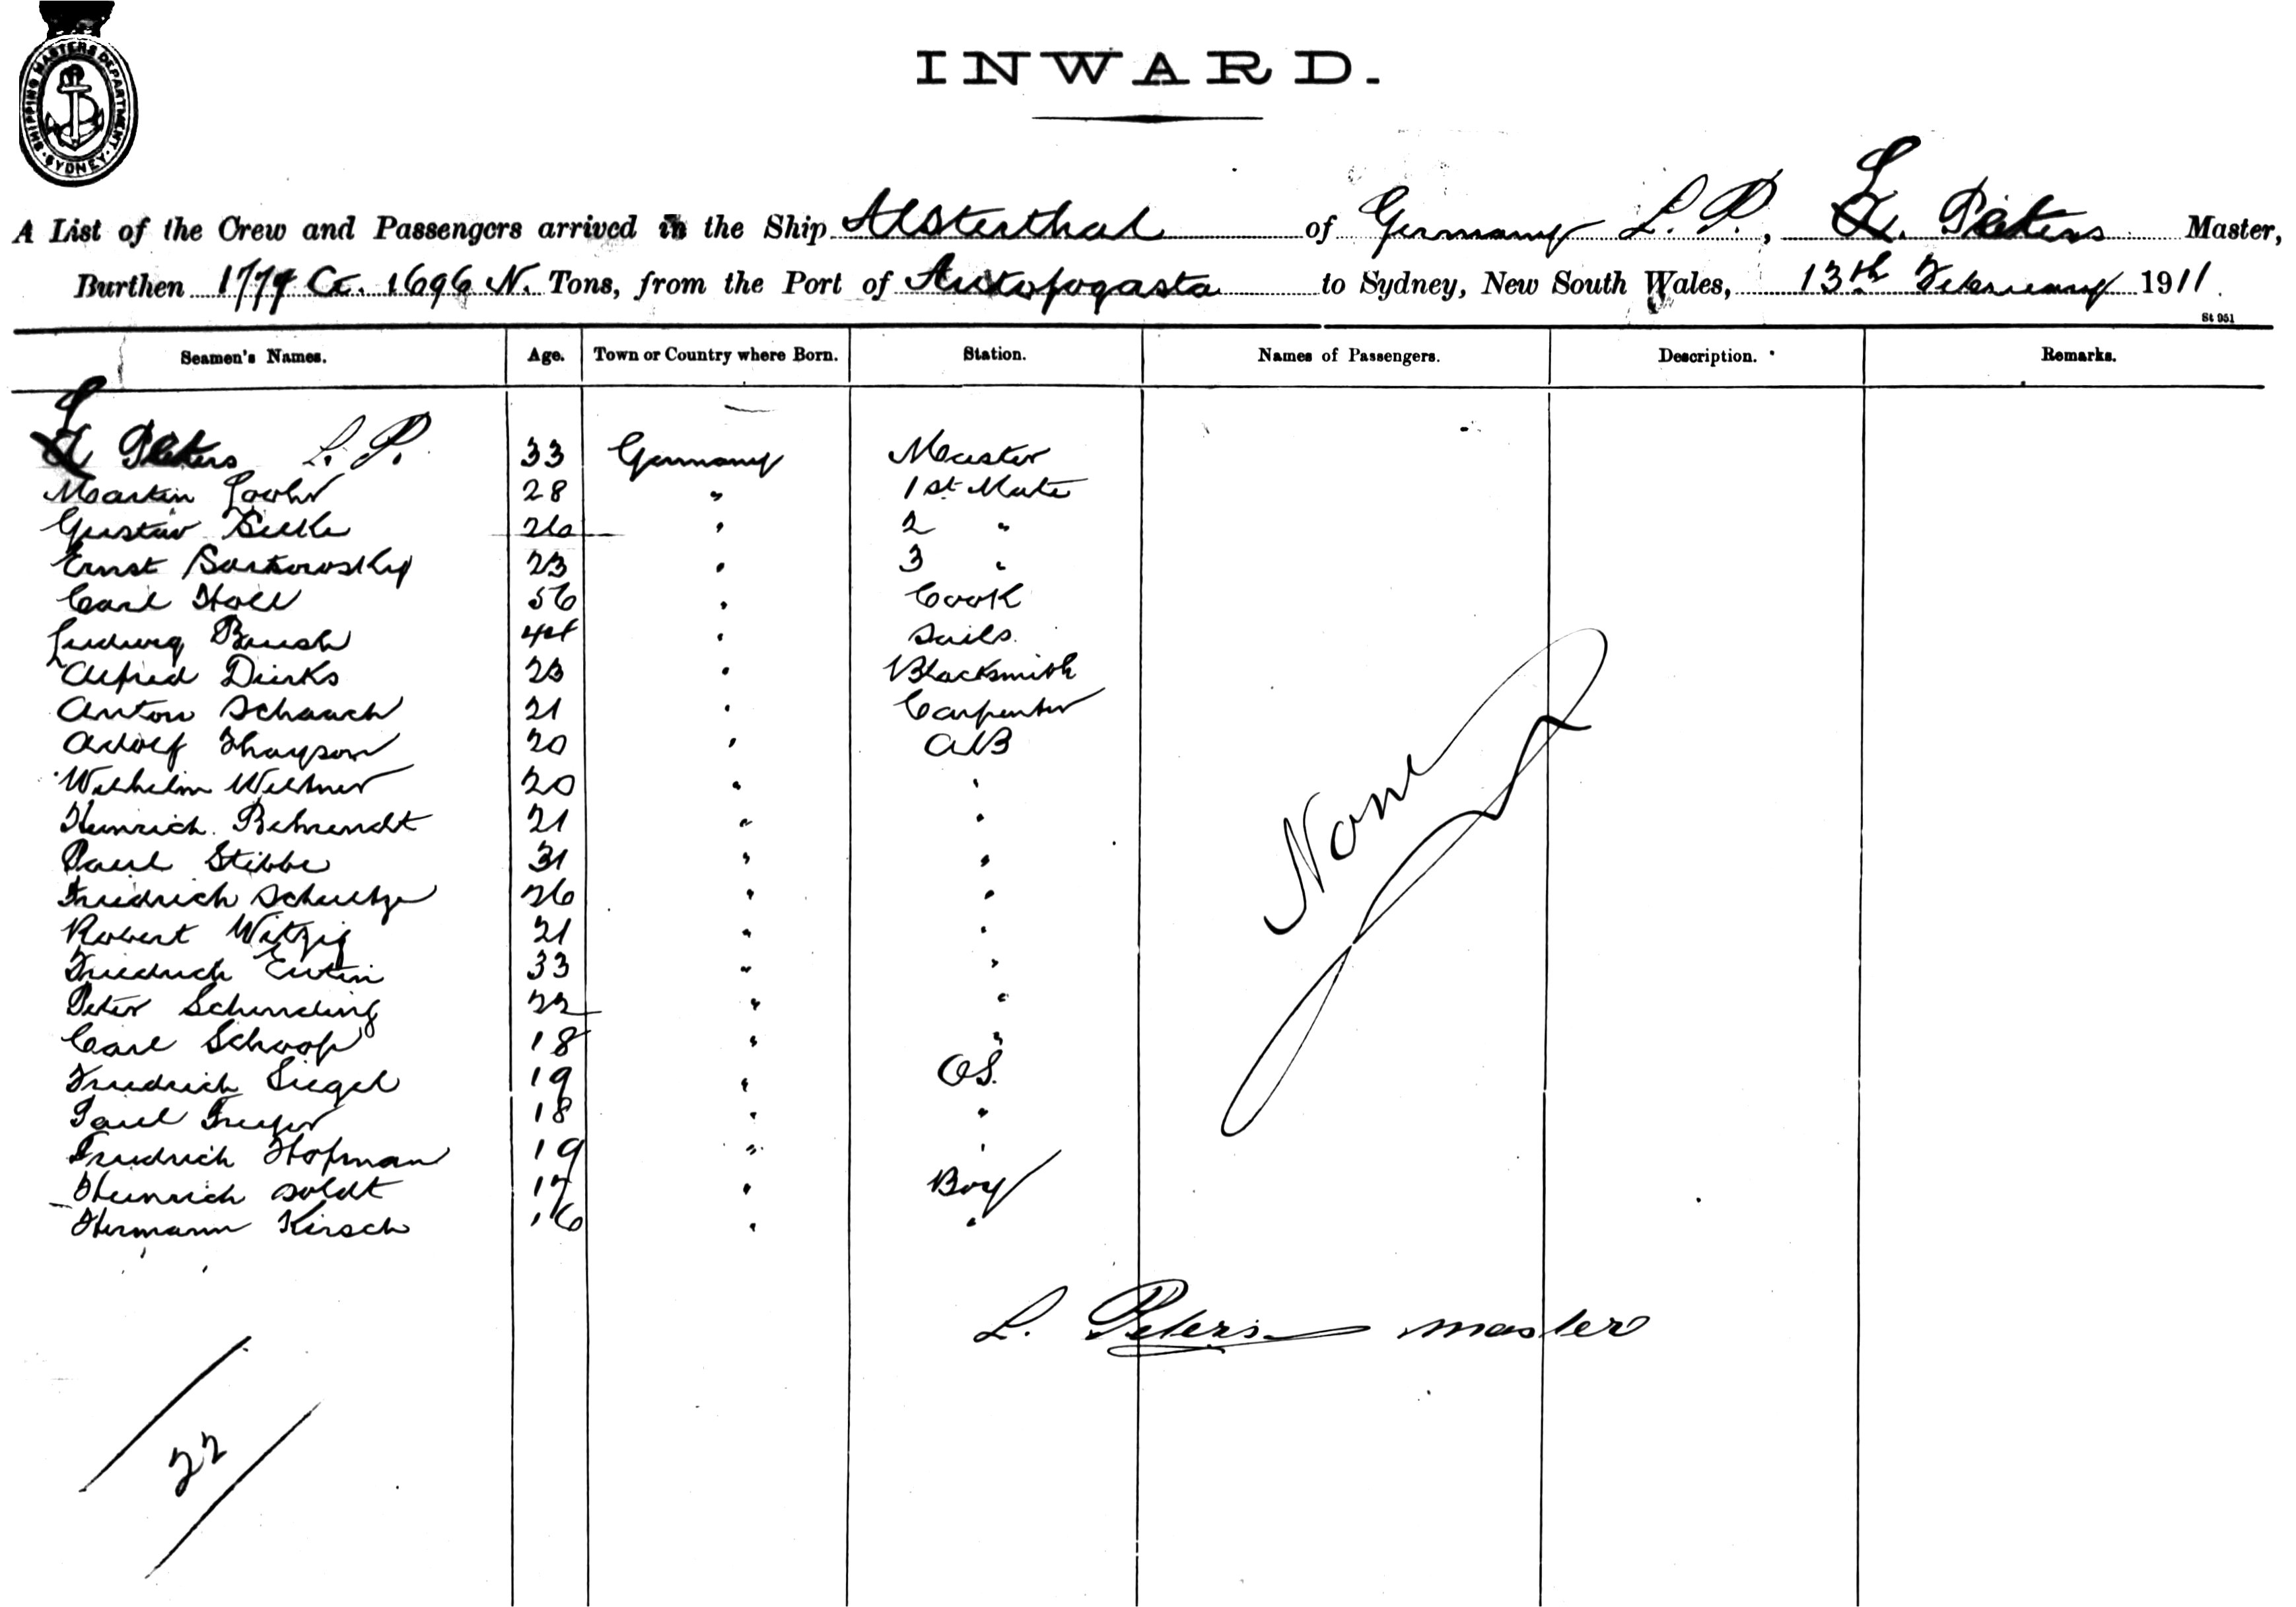 SHIPPING MASTERS DEPARTMENT · SYDNEY ·
INWARD.
A List of the Crew and Passengers arrived in the Ship Alsterthal of Germany L. P., L. Peters Master,
Burthen 1779 G. 1696 N. Tons, from the Port of Antofogasta to Sydney, New South Wales, 13th February 1911.
St 951
Seamen's Names. Age. Town or Country where Born. Station. Names of Passengers. Description. Remarks.
L Peters L. P. 33 Germany Master
Martin 28 " 1st Mate
Gustav 26 " 2 "
Ernst 23 " 3 "
Carl Holl 56 " Cook
Ludwig Brush 44 " Sails.
Alfred Dirks 23 " Blacksmith
Anton Schaach 21 " Carpenter
Adolf Thayson 20 " AB
Wilhelm 20 " "
Heinrich Behrendt 21 " "
Paul Stibbe 31 " "
Friedrich Schultze 26 " "
Robert Witzig 21 " "
Friedrich 33 " "
Peter Schmeling 22 " "
Carl Schoop 18 " "
Friedrich Siegel 19 " OS.
Paul 18 " "
Friedrich Hofman 19 " "
Heinrich Soldt 17 " Boy
Hermann Kirsch 16 " "
None
L. Peters master
22